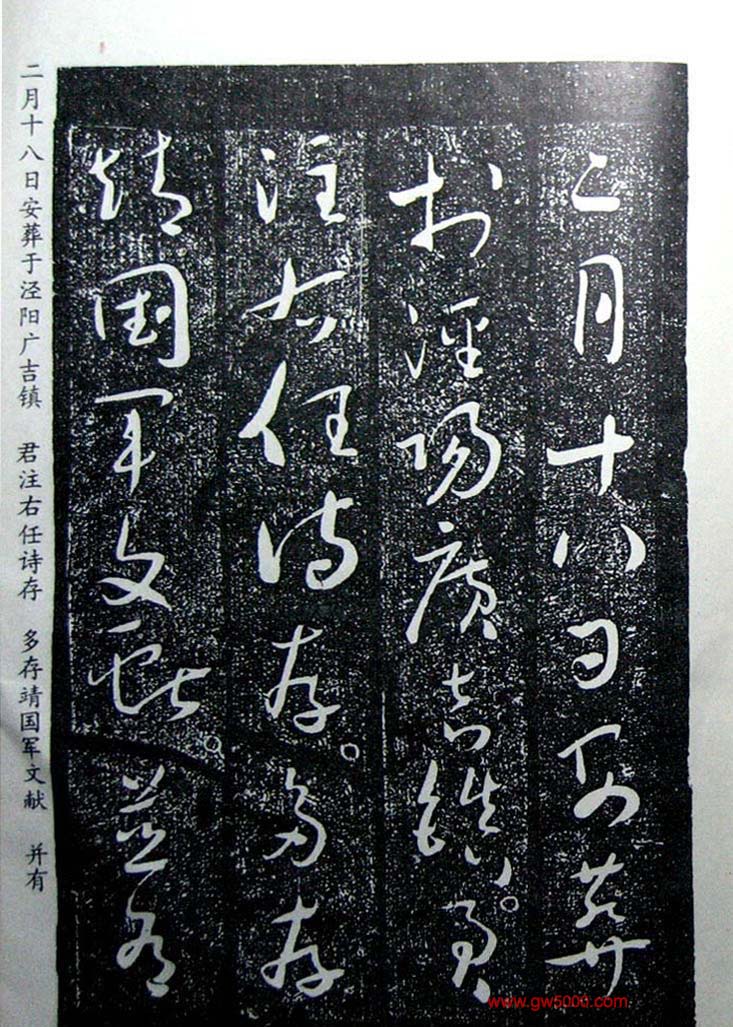 二月十八日安葬
於泾陽廣吉鎮。君
注右任诗存。多存
靖國軍文獻。並有
二月十八日安葬于泾阳广吉镇 君注右任诗存 多存靖国军文献 并有
www.gw5000.com